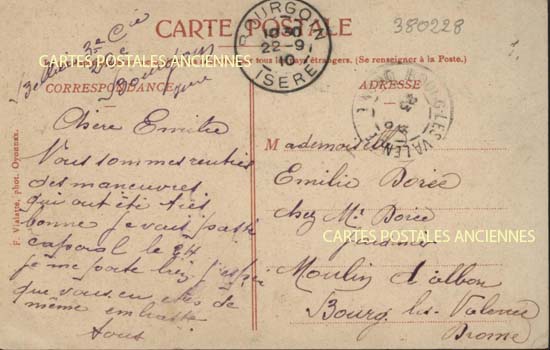 CARTE POSTALE
380228
BOURGOIN
10 30
22-9
10
ISERE
3e Cie
CARTES POSTALES ANCIENNES
tous les pays étrangers. (Se renseigner à la Poste.)
CORRESPONDANCE
ADRESSE
BOURG-LES-VALENCE
F. Vialatte, phot. Oyonnax
Chère Emilie
Nous sommes rentrés
des manoeuvres
qui ont été très
bonne je vais passé
caporal le 24
je me porte bien j'espère
que vous en etes de
même embrasse
tous
Mademoiselle
Emilie Borée
chez Mr Borée
CARTES POSTALES ANCIENNES
Moulin d'albon
Bourg les Valence
Drome